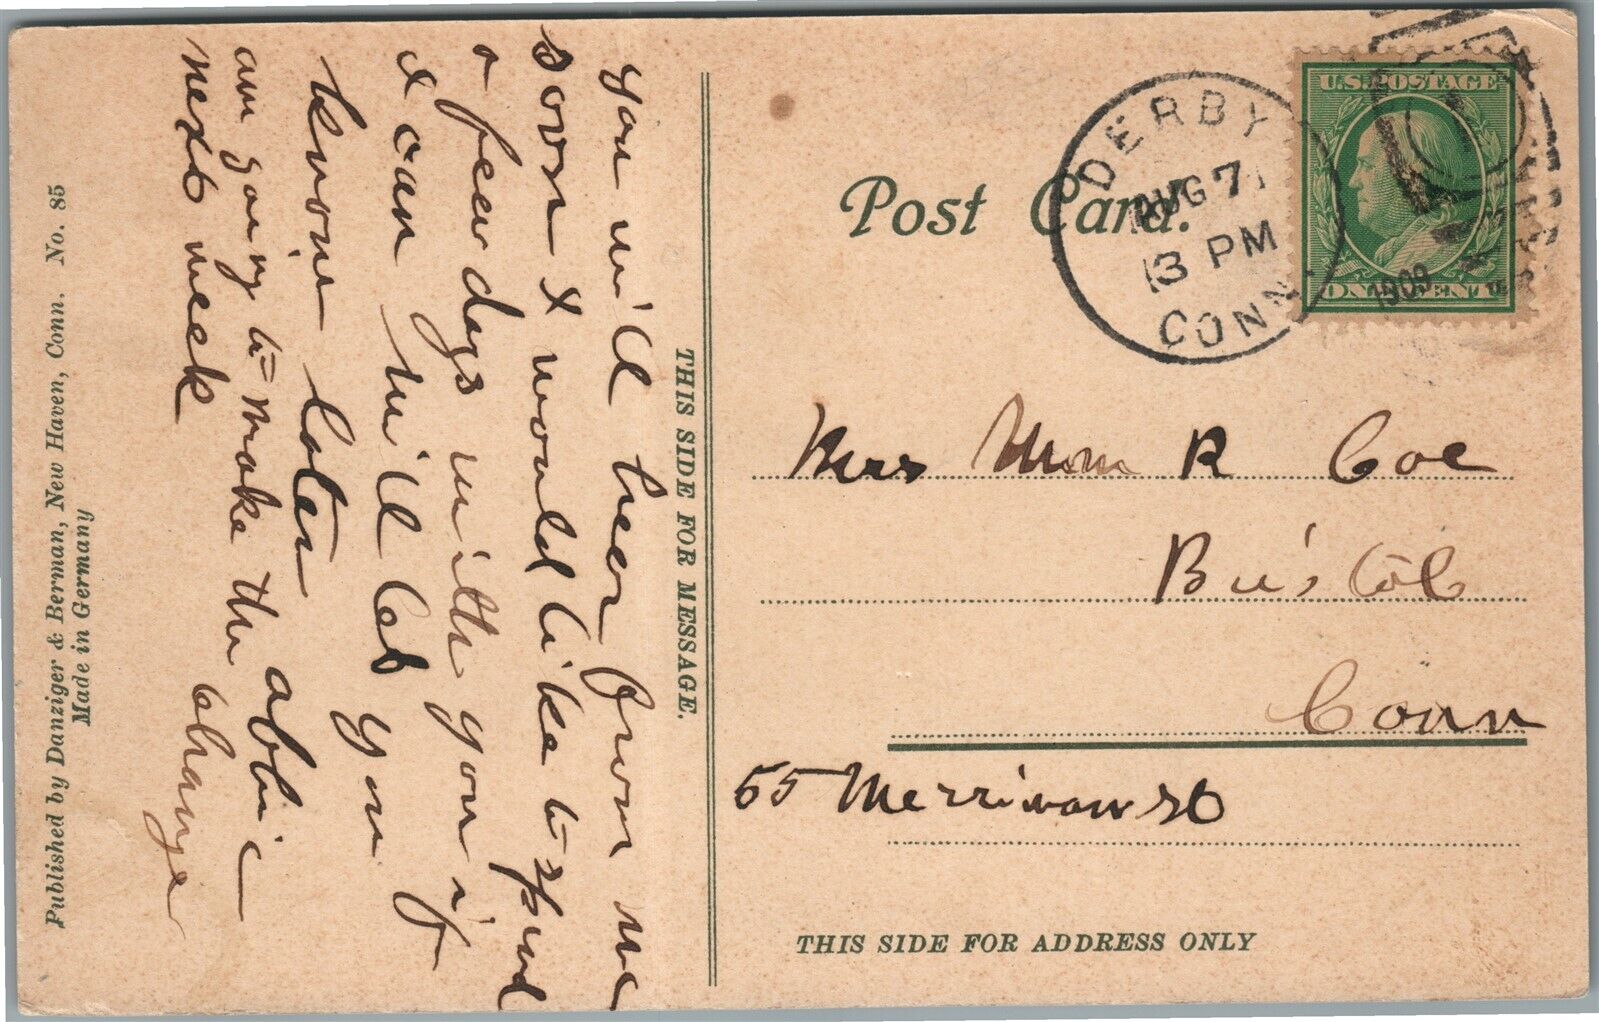 you will hear from me
soon I would like to spend
a few days with you if
I can will let you
know later
am going to make the
next week change
Published by Danziger & Berman, New Haven, Conn. No. 85
Made in Germany
THIS SIDE FOR MESSAGE.
Post Card.
DERBY
AUG 7
3 PM
CONN.
1909
U.S. POSTAGE
ONE CENT
Mrs Wm R Coe
Bristol
Conn
55 Merriman St
THIS SIDE FOR ADDRESS ONLY